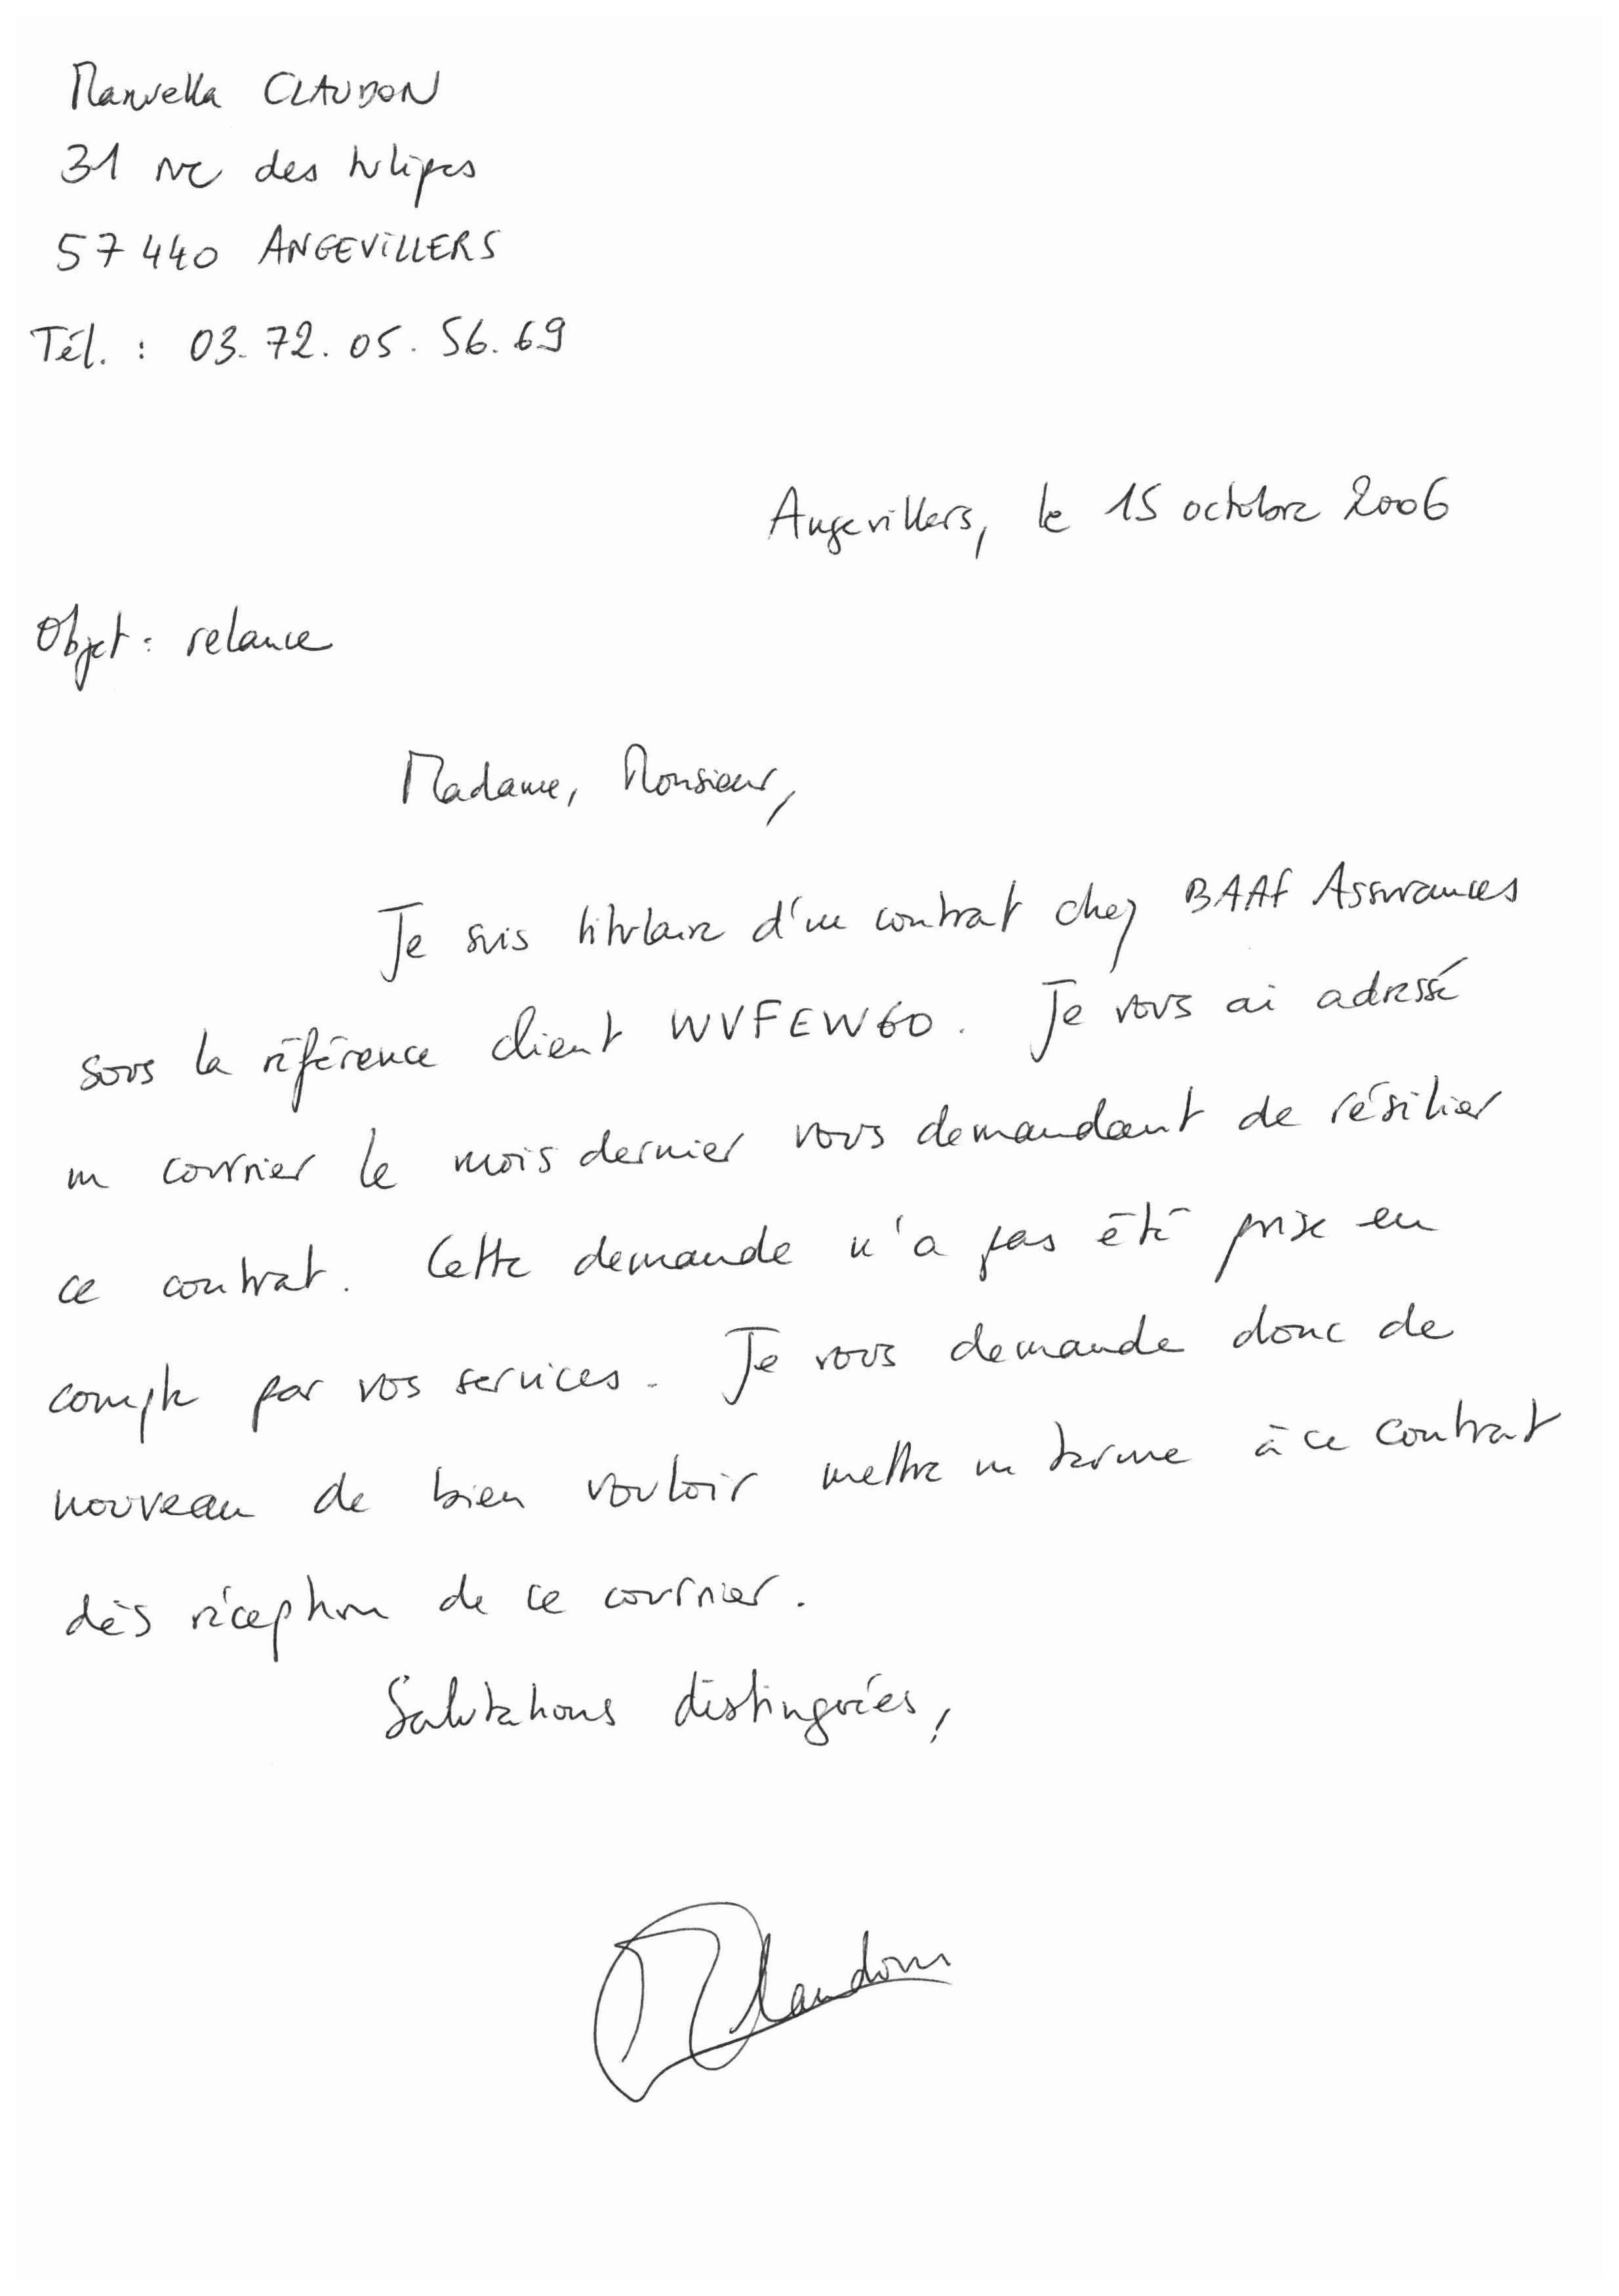 Manuella CLAUDON
31 rue des tulipes
57440 ANGEVILLERS
Tél. : 03.72.05.56.69
Angevillers, le 15 octobre 2006
Objet : relance
Madame, Monsieur,
Je suis titulaire d'un contrat chez BAAF Assurances
sous la référence client WVFEW60. Je vous ai adressé
un courrier le mois dernier vous demandant de résilier
ce contrat. Cette demande n'a pas été prise en
compte par vos services. Je vous demande donc de
nouveau de bien vouloir mettre un terme à ce contrat
dès réception de ce courrier.
Salutations distinguées,
MClaudon